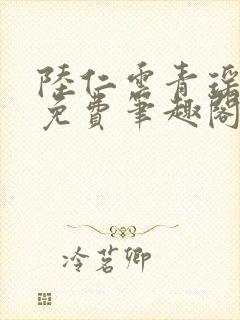 陸仁雲青瑤
免費筆趣閣
冷茗卿